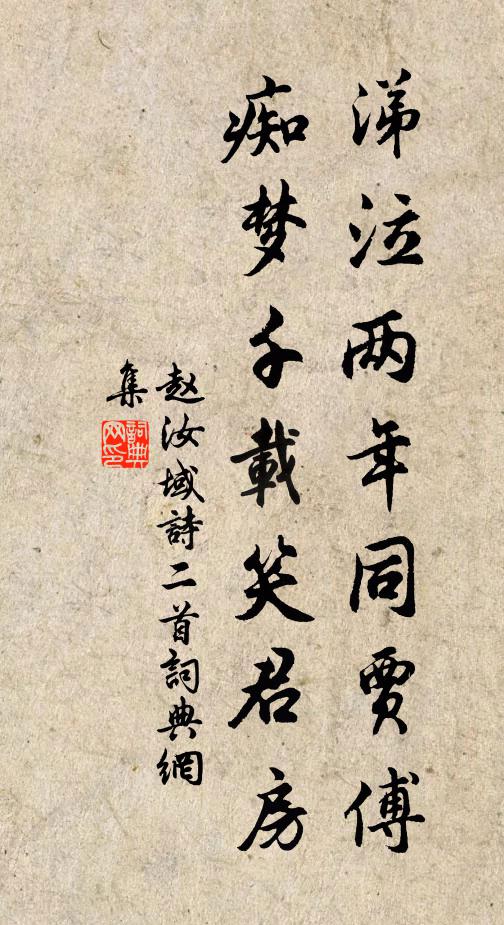 涕泣两年同賈傅
痴梦千載笑君房
赵汝域詩二首詞典網
集
詞典
网印